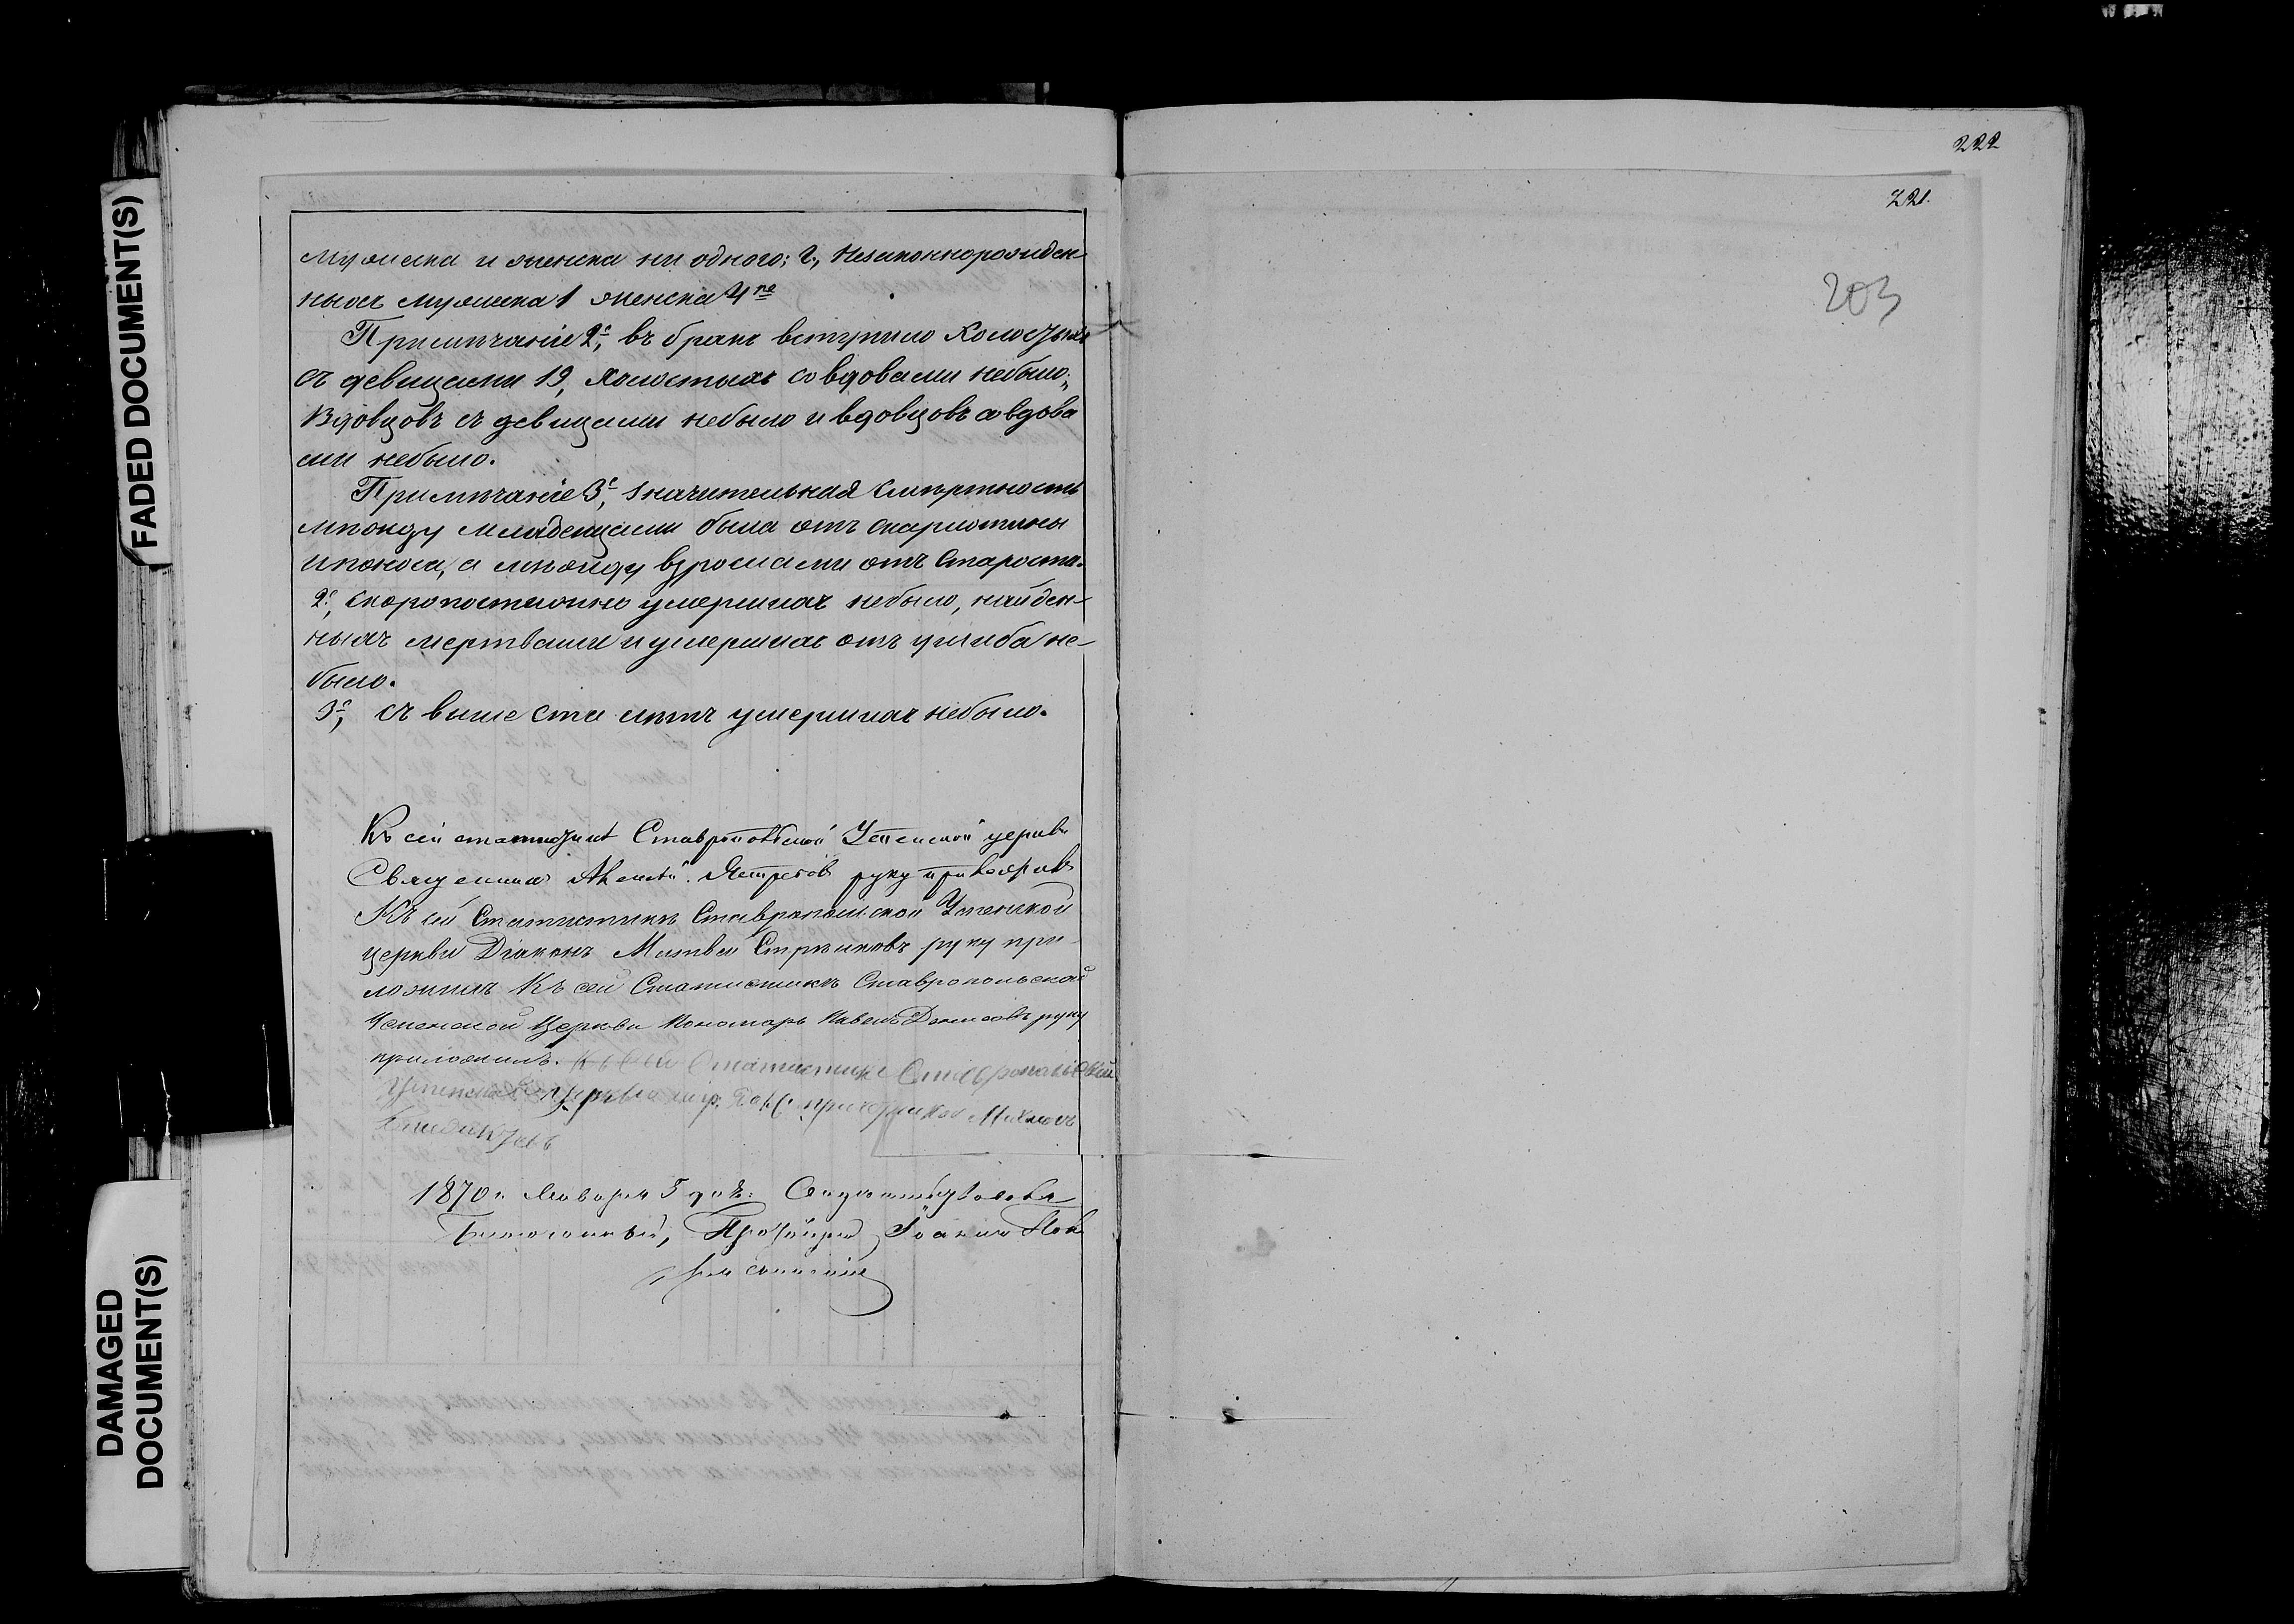 222
221.
203
мужеска и женска ни одного; г., Незаконнорожден-
ныхъ мужеска 1 женска 4ре
Примѣчаніе 2е, въ бракъ вступило Холостыхъ
съ девицами 19, Холостыхъ со вдовами небыло„
Вдовцовъ съ девицами небыло и вдовцовъ со вдова
ми небыло.
Примѣчаніе 3е, Значительная Смѣртность
мѣжду младенцами была отъ скарлотины
и поноса, а мѣжду взрослами отъ Старости.
2е, скоропостижно умершихъ небыло, найден-
ныхъ мертвыми и умершихъ отъ ушиба не-
было.
3е, съ выше Ста лѣтъ умершихъ небыло.
Къ сей статистикѣ Ставропольской Успенской церкви
Священникъ Алексѣй Ястребовъ руку приложилъ
Къ сей Статистикѣ Ставропольской Успенской
церкви Діаконъ Матвей Стрѣлковъ руку при-
ложилъ Къ сей Статистикѣ Ставропольской
Успенской Церкви Пономарь Павелъ Денисовъ руку
приложилъ. Къ сей Статистике Ставропольской
Успенской церкви
1870 г. Января 5 дня.
Благочинный, Протоіерей Іоаннъ
FADED DOCUMENT(S)
DAMAGED
DOCUMENT(S)